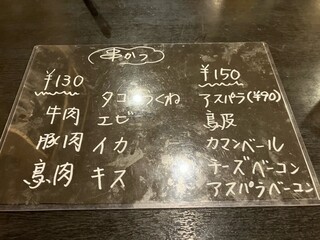 串かつ
¥130
牛肉
豚肉
鳥肉
タコ つくね
エビ
イカ
キス
¥150
アスパラ(¥90)
鳥皮
カマンベール
チーズベーコン
アスパラベーコン